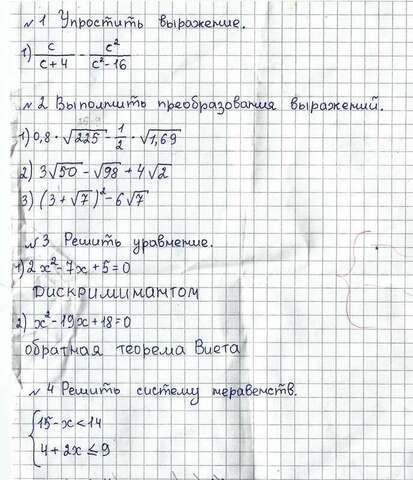 №1 Упростить выражение.
1) c/(c+4) - c²/(c²-16)
№2 Выполнить преобразования выражений.
1) 0,8 · √225 - 1/2 · √1,69
2) 3√50 - √98 + 4√2
3) (3 + √7)² - 6√7
№3 Решить уравнение.
1) 2x² - 7x + 5 = 0
Дискриминантом
2) x² - 19x + 18 = 0
обратная теорема Виета
№4 Решить систему неравенств.
{15 - x < 14
4 + 2x ≤ 9